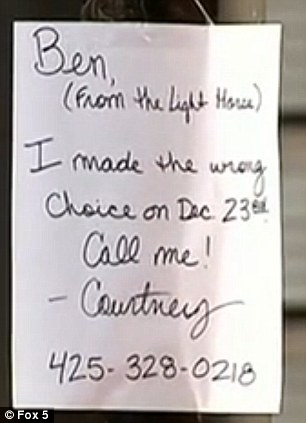 Ben,
(From the Light Horse)
I made the wrong
Choice on Dec 23rd.
Call me!
- Courtney
425-328-0218
© Fox 5